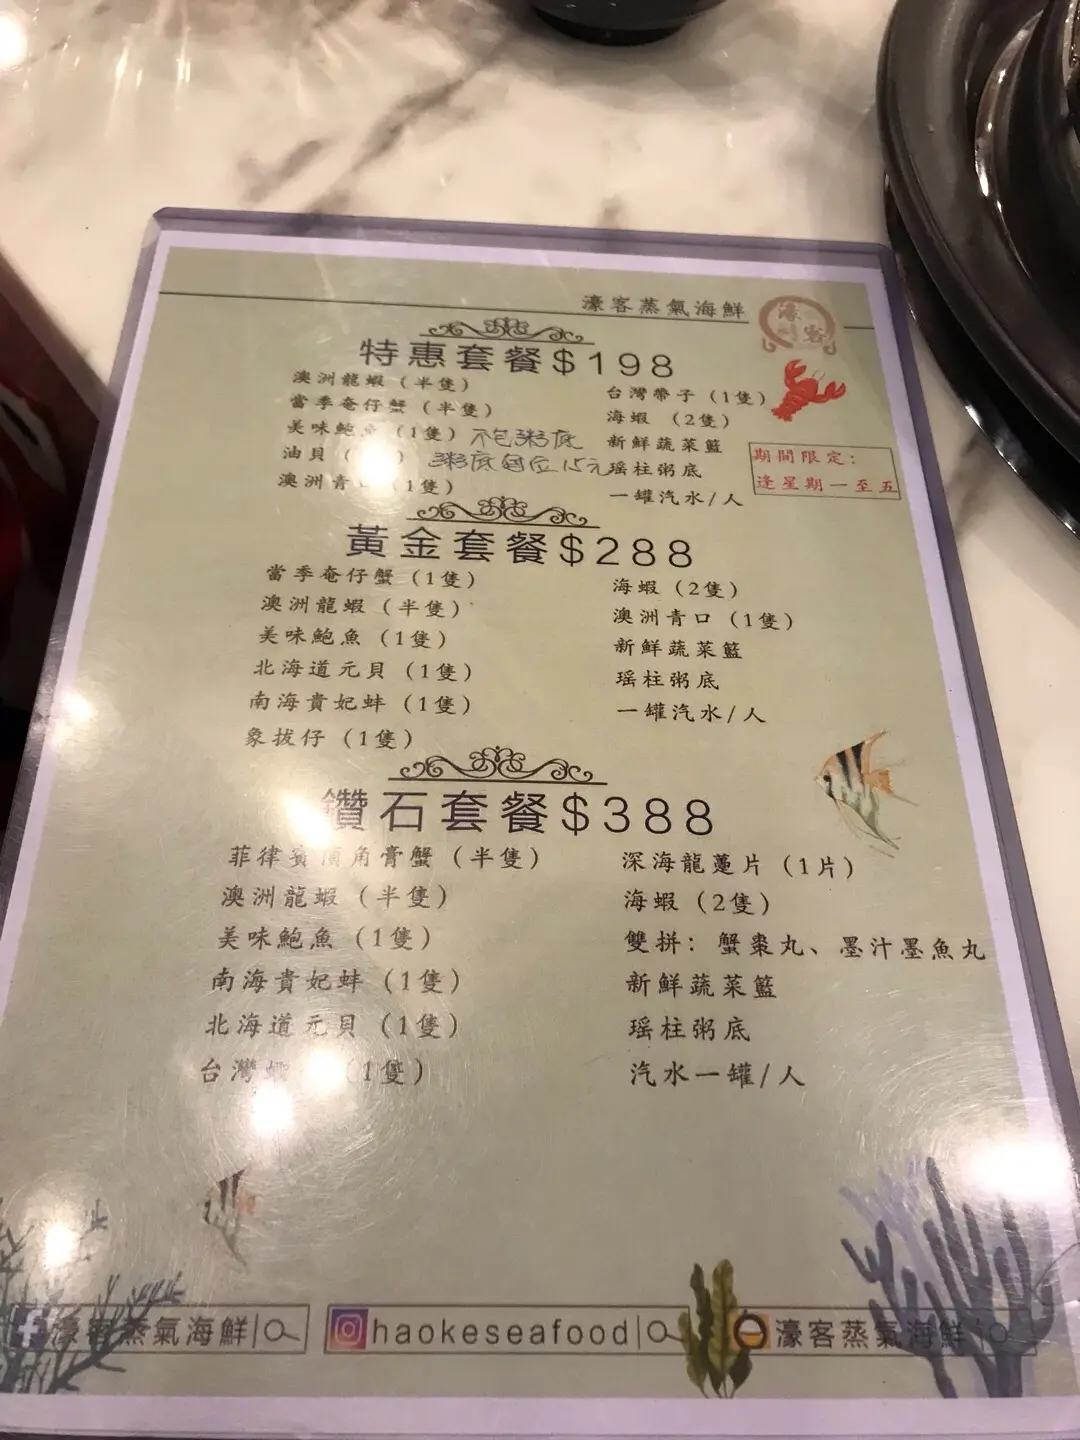 濠客蒸氣海鮮
濠客
特惠套餐$198
澳洲龍蝦(半隻)
當季奄仔蟹(半隻)
美味鮑魚(1隻)
油貝
澳洲青口(1隻)
不包粥底
粥底每位15元
台灣帶子(1隻)
海蝦(2隻)
新鮮蔬菜籃
瑶柱粥底
一罐汽水/人
期間限定:
逢星期一至五
黃金套餐$288
當季奄仔蟹(1隻)
澳洲龍蝦(半隻)
美味鮑魚(1隻)
北海道元貝(1隻)
南海貴妃蚌(1隻)
象拔仔(1隻)
海蝦(2隻)
澳洲青口(1隻)
新鮮蔬菜籃
瑶柱粥底
一罐汽水/人
鑽石套餐$388
菲律賓頂角膏蟹(半隻)
澳洲龍蝦(半隻)
美味鮑魚(1隻)
南海貴妃蚌(1隻)
北海道元貝(1隻)
台灣 (1隻)
深海龍躉片(1片)
海蝦(2隻)
雙拼:蟹棗丸、墨汁墨魚丸
新鮮蔬菜籃
瑶柱粥底
汽水一罐/人
濠客蒸氣海鮮
haokeseafood
濠客蒸氣海鮮